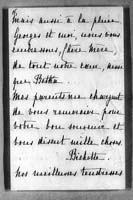 Mais aussi à la pluie
Georges et moi, nous vous
embrassons, chère Mère,
de tout notre cœur,
Botha.
Mes parents me chargent
de vous remercier pour
votre bon souvenir et
vous disent mille choses
Bichette.
nos meilleures tendresses